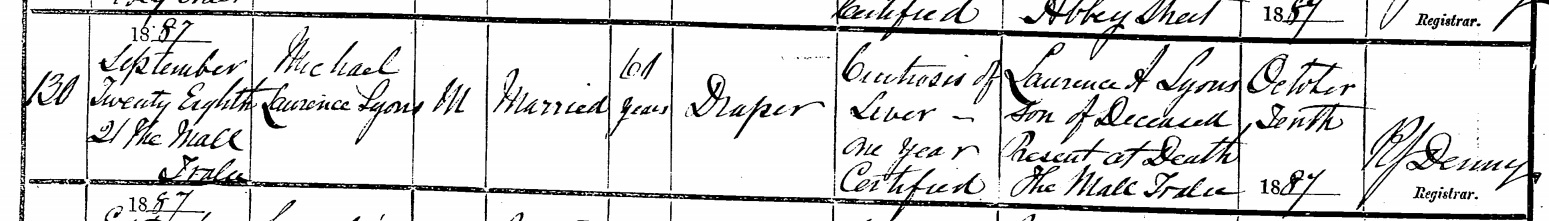 Certified
Abbey Street
1887
Registrar.
130
1887
September
Twenty Eighth
21 The Mall
Tralee
Michael
Laurence Lyons
M
Married
61
years
Draper
Cirrhosis of
Liver –
One year
Certified
Laurence A Lyons
Son of Deceased
Present at Death
The Mall Tralee
October
Tenth
1887
Denny
Registrar.
1887